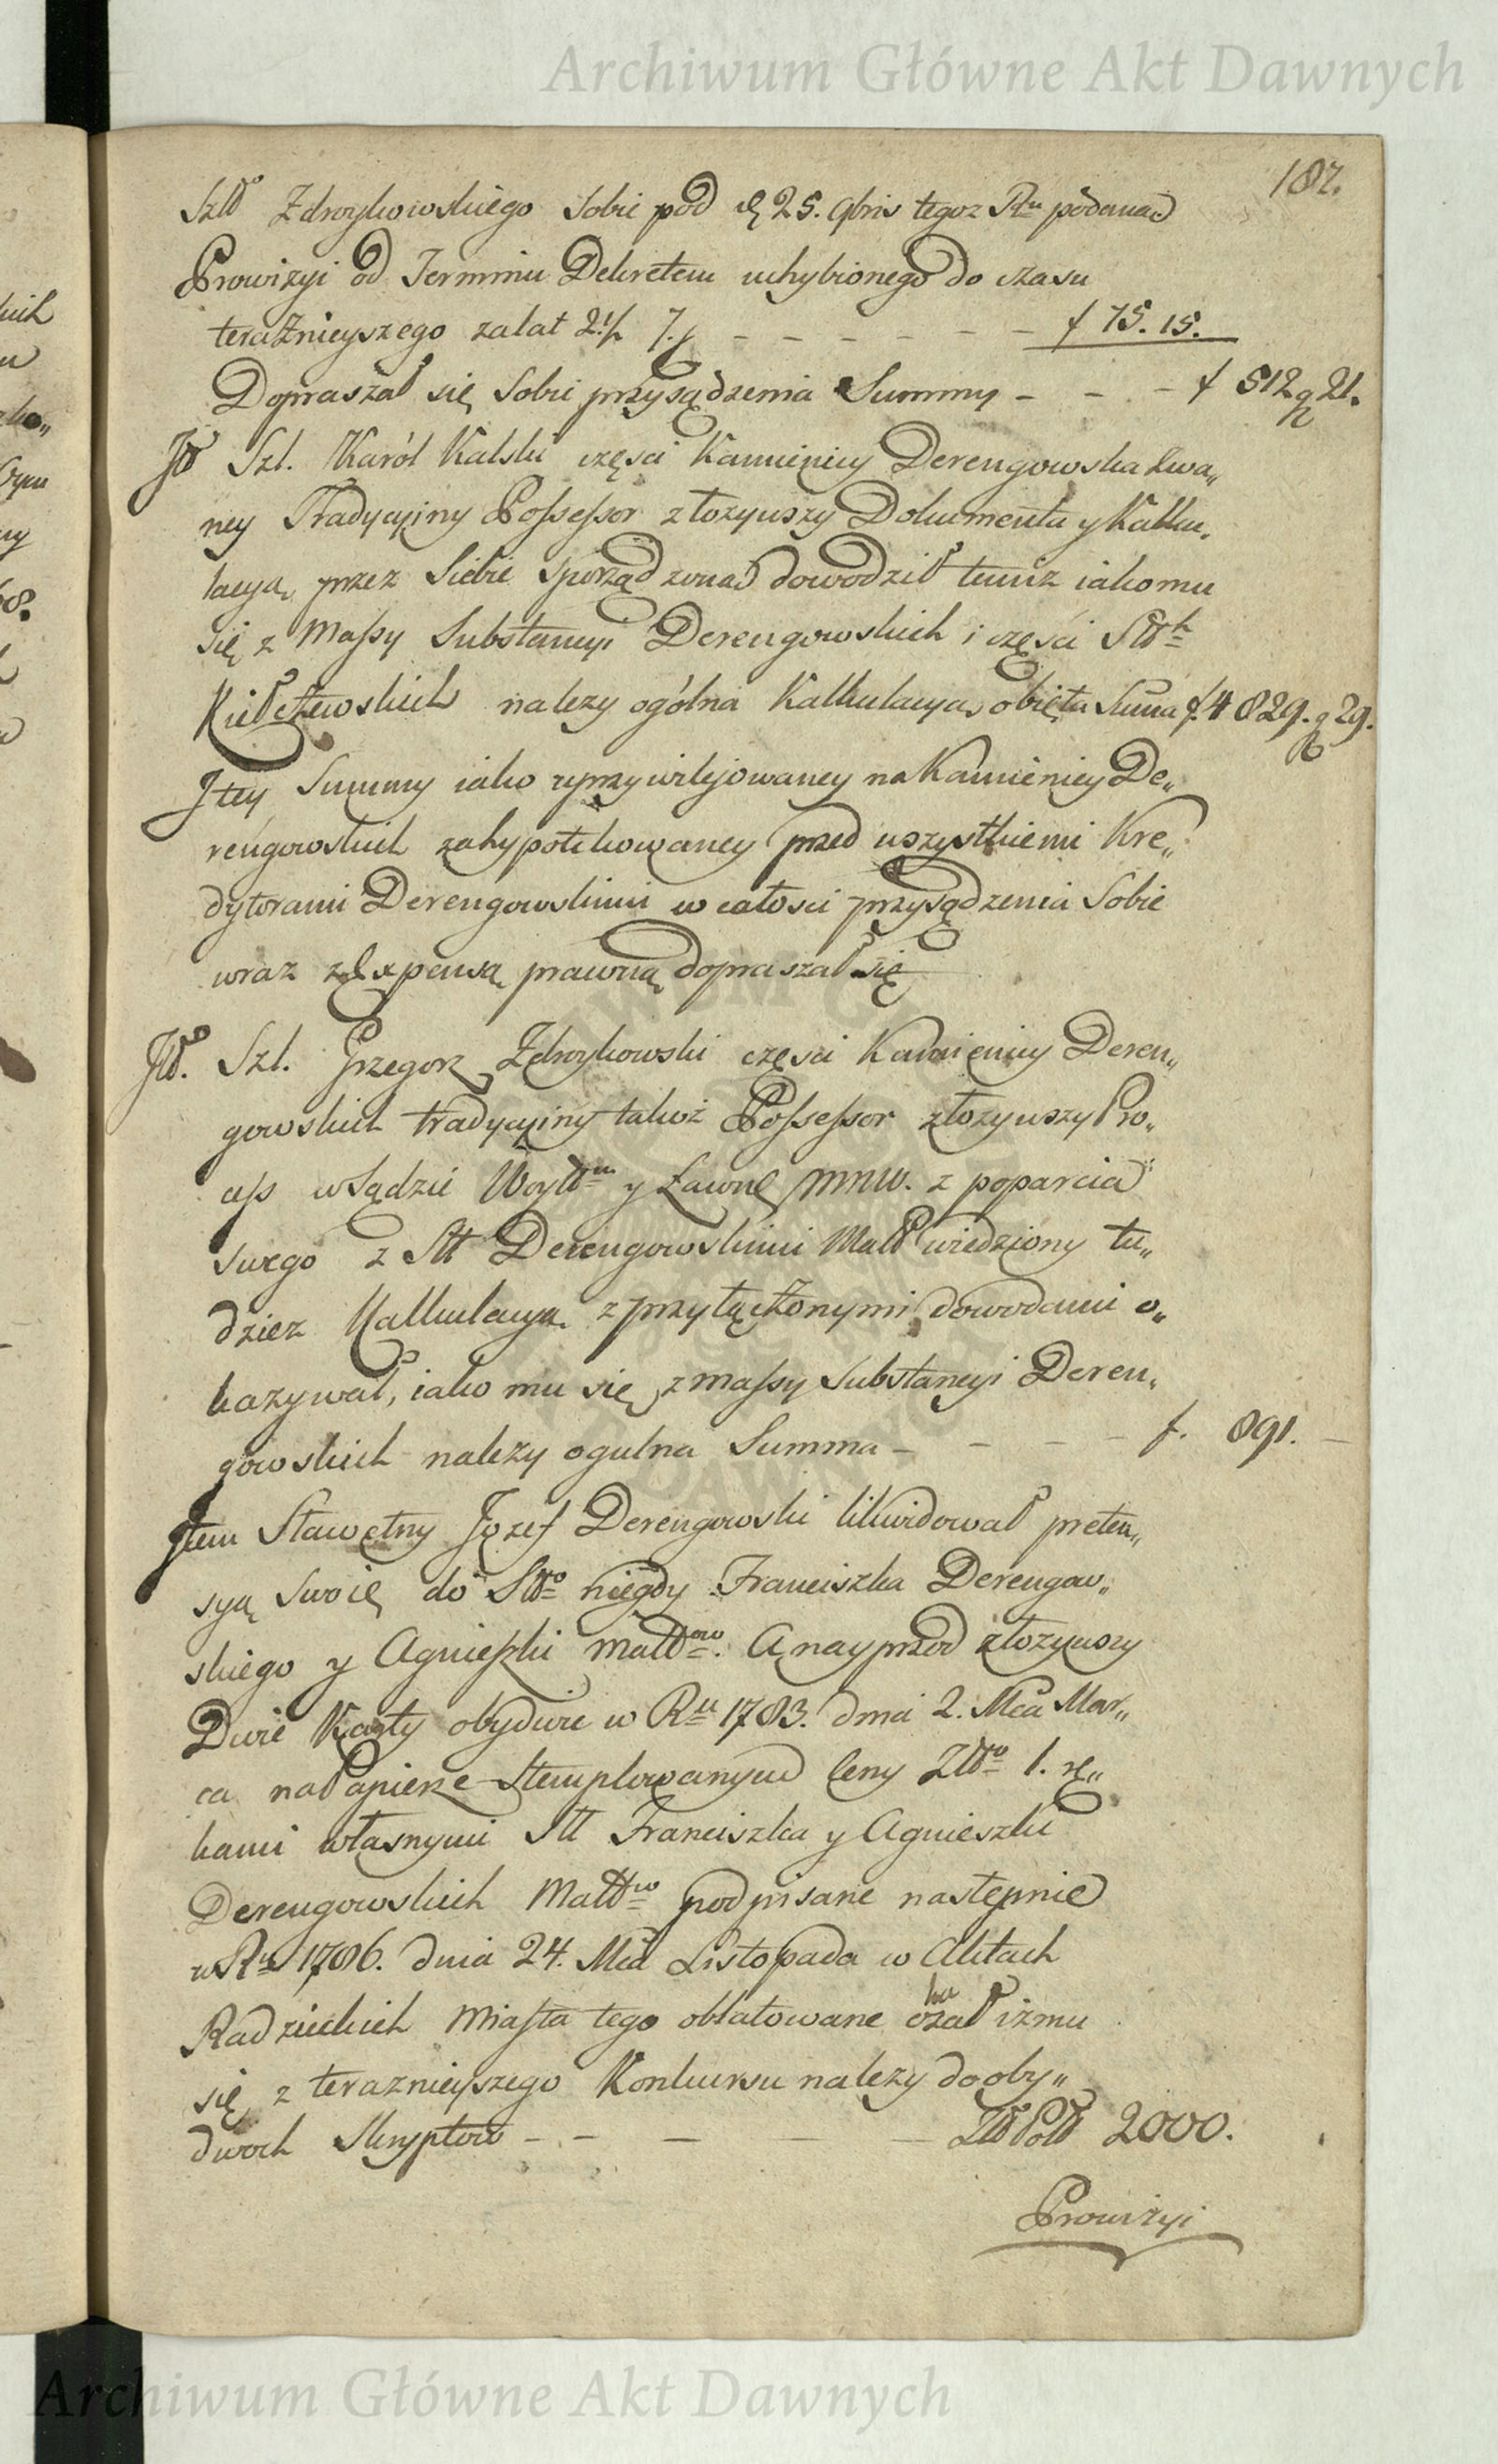 Archiwum Główne Akt Dawnych
187.
Szltº Zdroykowskiego Sobie pod d. 25. 9bris tegoz Rku podana
Prowizyi od Terminu Dekretem uchybionego do czasu
teraznieyszego za lat 2½ - - - - - f 75. 15.
Dopraszał się Sobie przysądzenia Summy - - - f 512 g 21.
Jtº Szl. Karól Kalski częsci Kamienicy Derengowska zwa„
ney Tradycyiny Possessor złozywszy Dokumenta y Kalku„
lacyą przez Siebie sporządzoną dowodził temiz iako mu
się z Massy Substancyi Derengowskich i częsci Stth
Kiełczewskich nalezy ogólna Kalkulacyą obięta Suma f. 4829. g 29.
Jtey Summy iako uprzywilejowaney na Kamienicy De„
rengowskich zahypotekowaney przed wszystkiemi Kre„
dytorami Derengowskimi w całosci przysądzenia Sobie
wraz z Expensą prawną dopraszał się
Jtº. Szl. Grzegorz Zdroykowski częsci Kamienicy Deren„
gowskich tradycyiny takoż Possessor złozywszy Pro„
cess w Sądzie Woytt y Ławnę MNW. z poparcia
swego z Stt Derengowskimi Małł wiedziony tu„
dziez Kalkulacyą z przyłączonymi dowodami o„
kazywał, iako mu się z massy Substancyi Deren„
gowskich nalezy ogulna Summa - - - - f. 891. -
Jtem Sławetny Józef Derengowski likwidował preten„
syą Swoię do Sttº niegdy Franciszka Derengow„
skiego y Agnieszki Małłow. A nayprzod złozywszy
Dwie Karty obydwie w Rku 1783. dnia 2. Mca Mar„
ca na Papierze Stemplowanym Ceny Złto 1. rę„
kami własnymi Stt Franciszka y Agnieszki
Derengowskich Małłow podpisane następnie
w Rku 1786. dnia 24. Mca Listopada w Aktach
Radzieckich Miasta tego oblatowane okazał iz mu
się z teraznieyszego Konkursu nalezy do oby„
dwoch Skryptow - - - - - Złł Poll 2000.
Prowizyi
Archiwum Główne Akt Dawnych